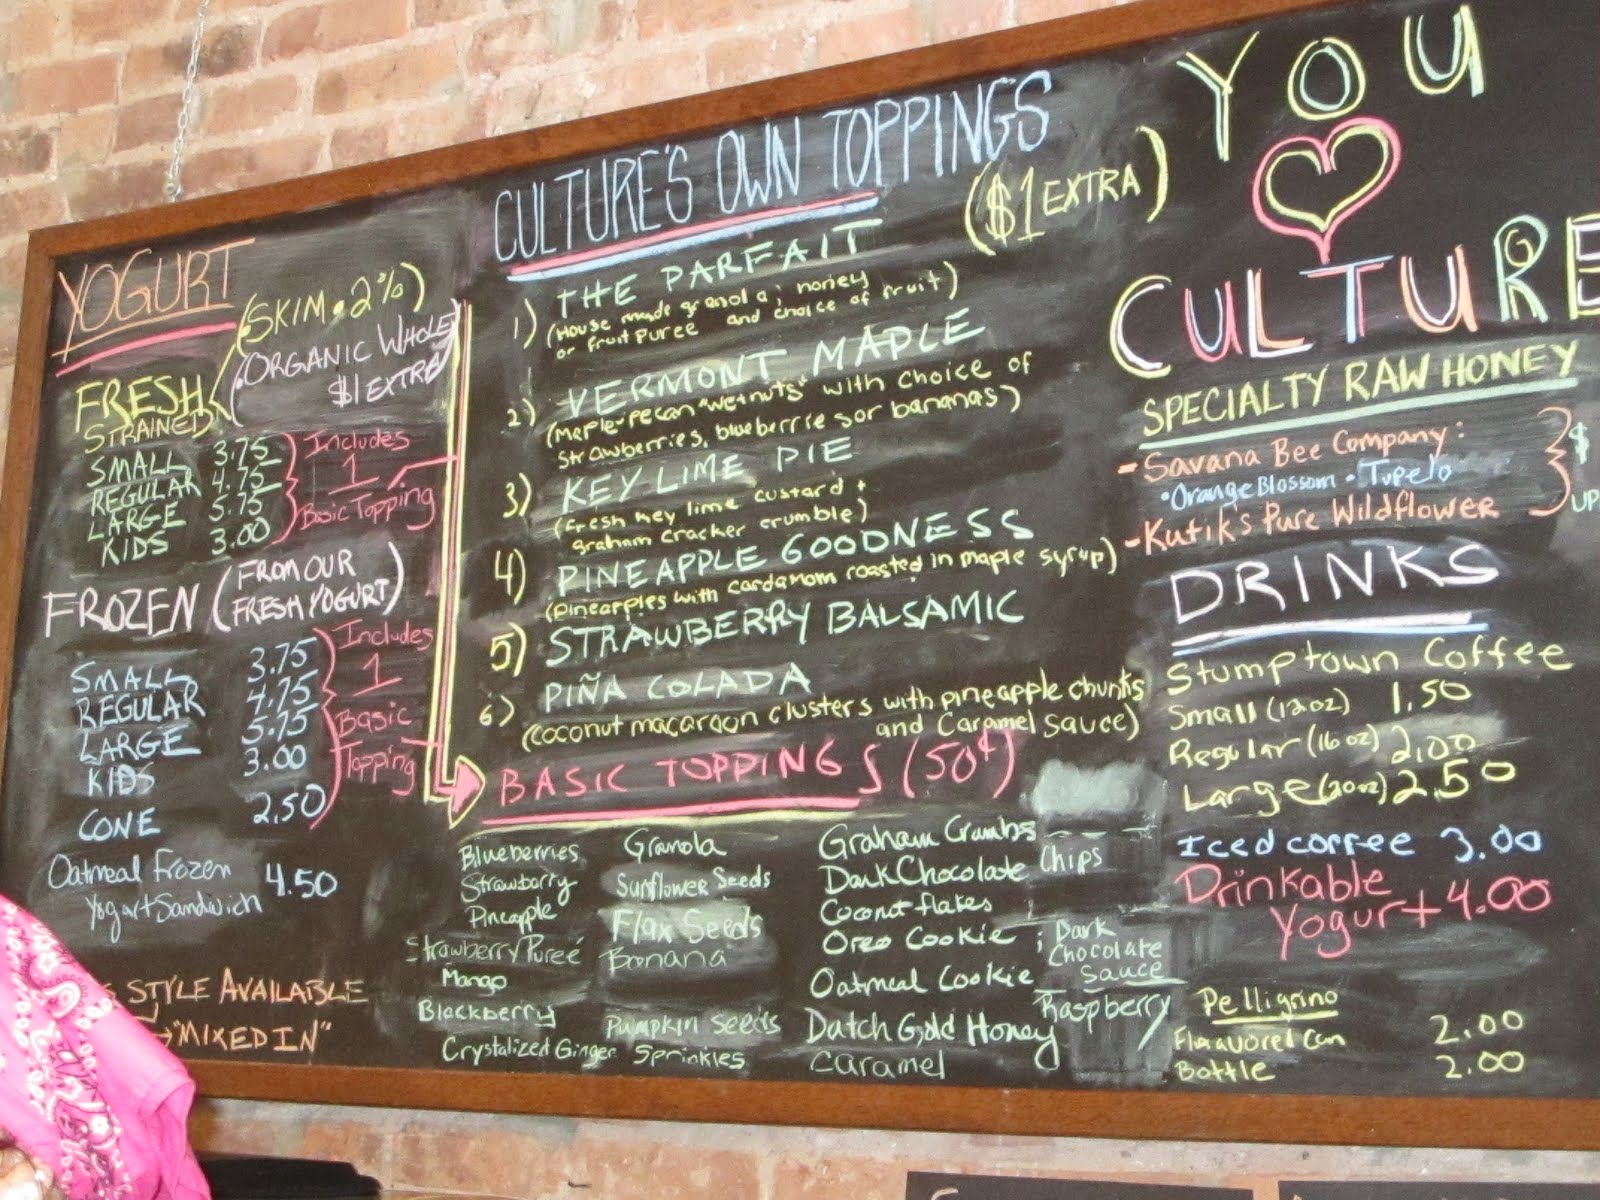 YOGURT
(• SKIM • 2%)
(• ORGANIC WHOLE
$1 EXTRA
FRESH
STRAINED
SMALL 3.75
REGULAR 4.75
LARGE 5.75
KIDS 3.00
Includes
1
Basic Topping
FROZEN (FROM OUR
FRESH YOGURT)
SMALL 3.75
REGULAR 4.75
LARGE 5.75
KIDS 3.00
CONE 2.50
Includes
1
Basic
Topping
Oatmeal Frozen
Yogurt Sandwich 4.50
STYLE AVAILABLE
→"MIXED IN"
CULTURE'S OWN TOPPINGS
($1 EXTRA)
1) THE PARFAIT
(House made granola; honey
or fruit puree and choice of fruit)
2) VERMONT MAPLE
(maple-pecan "wetnuts" with choice of
strawberries, blueberries or bananas)
3) KEY LIME PIE
(fresh key lime custard +
graham cracker crumble)
4) PINEAPPLE GOODNESS
(pineapples with cardamom roasted in maple syrup)
5) STRAWBERRY BALSAMIC
6) PIÑA COLADA
(coconut macaroon clusters with pineapple chunks
and Caramel Sauce)
BASIC TOPPINGS (50¢)
Blueberries
Strawberry
Pineapple
Strawberry Pureé
Mango
Blackberry
Crystalized Ginger
Granola
Sunflower Seeds
Flax Seeds
Banana
Pumpkin Seeds
Sprinkles
Graham Crumbs
Dark Chocolate Chips
Coconut flakes
Oreo Cookie
Oatmeal Cookie
Dutch Gold Honey
Caramel
; Dark
Chocolate
Sauce
Raspberry
YOU
CULTURE
SPECIALTY RAW HONEY
- Savana Bee Company:
• Orange Blossom • Tupelo
- Kutik's Pure Wildflower
$
UP
DRINKS
Stumptown Coffee
Small (12oz) 1.50
Regular (16oz) 2.00
Large (20oz) 2.50
Iced coffee 3.00
Drinkable
Yogurt 4.00
Pelligrino
Flavored Can 2.00
Bottle 2.00